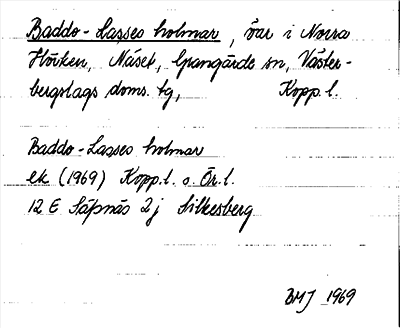 Baddo-Lasses holmar, öar i Norra
Hörken, Näset, Grangärde sn, Väster-
bergslags doms. tg, Kopp. l.
Baddo-Lasses holmar
ek (1969) Kopp. l. o. Ör. l.
12 E Säfsnäs 2j Silkesberg
BMJ 1969